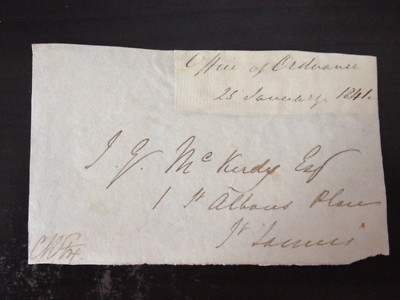 Office of Ordnance
25 January 1841.
J. G. McKerdy Esq
1 St Albans Place
St James